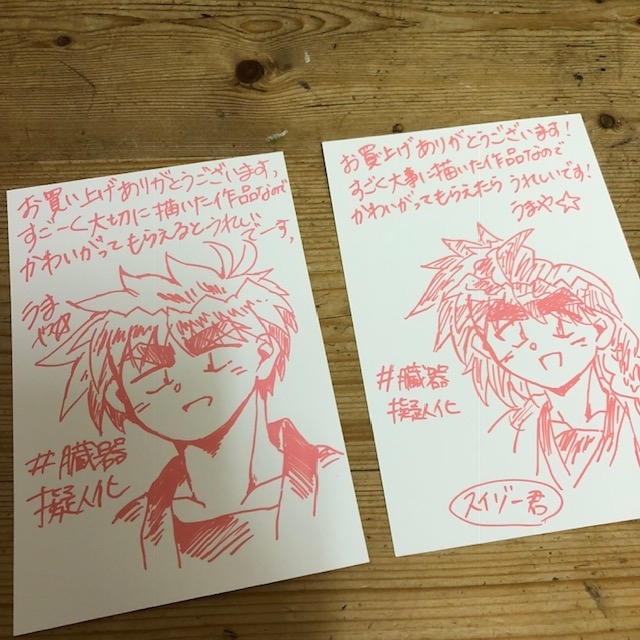 お買い上げありがとうございまます。
すごーく大切に描いた作品なので
かわいがってもらえるとうれしい
でーす。
うま
や☆
#臓器
擬人化
お買上げありがとうございます!
すごく大事に描いた作品なので
かわいがってもらえたら うれしいです!
うまや☆
#臓器
擬人化
スイゾー君